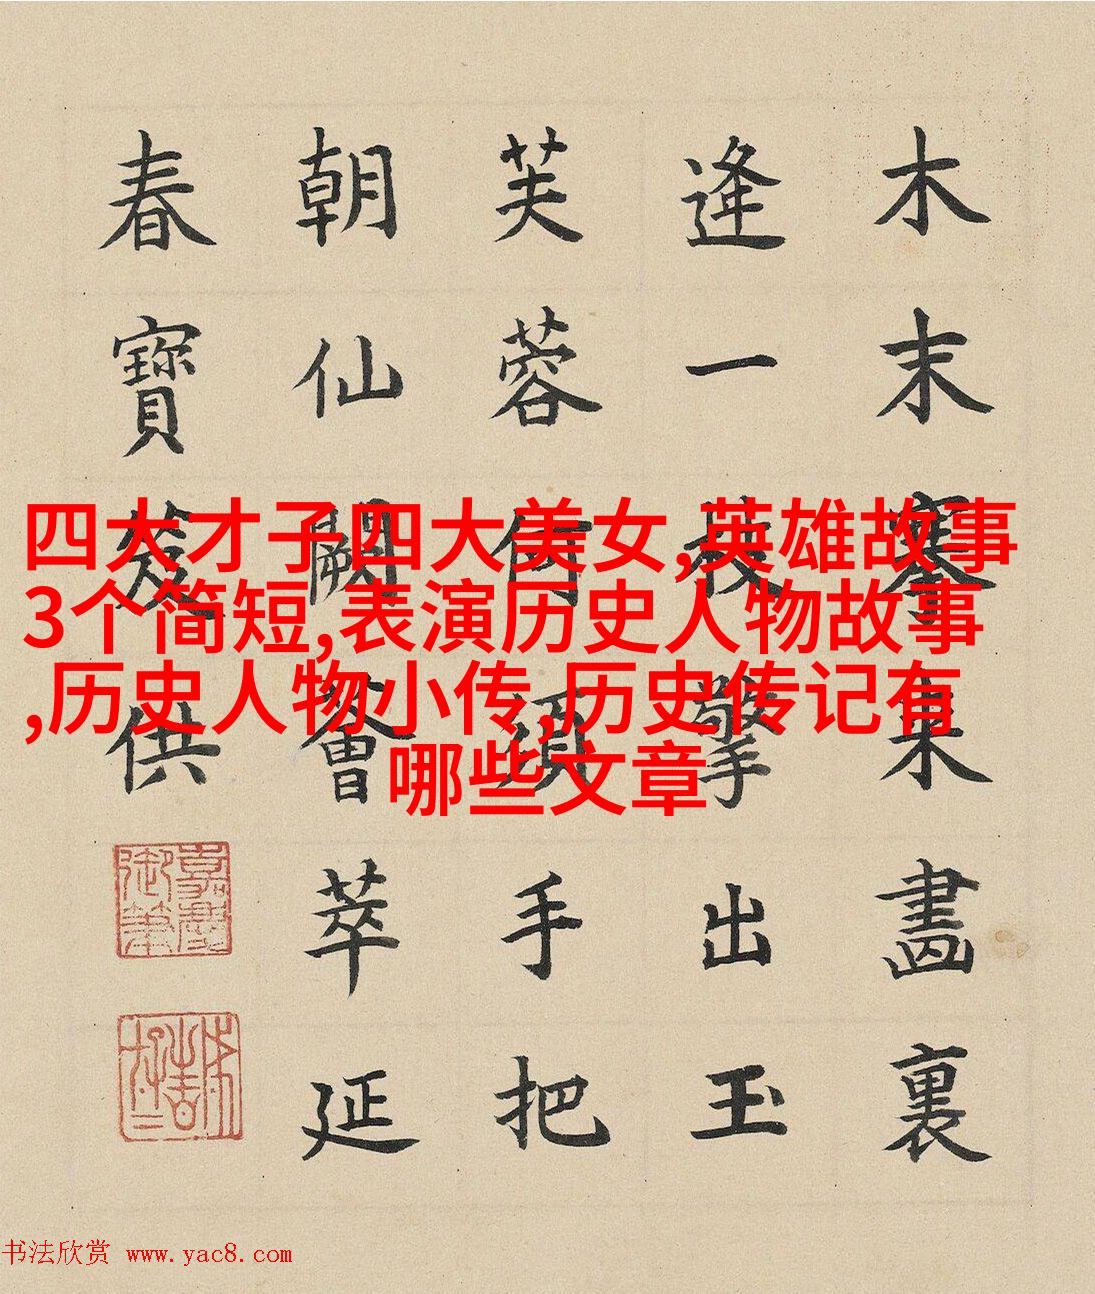 木末搴来畫裏
逢一枝擎出玉
芙蓉何須手把
朝仙闕薈萃延
春寶笈供
嘉慶御筆
四大才子四大美女,英雄故事
3个简短,表演历史人物故事
,历史人物小传,历史传记有
哪些文章
书法欣赏 www.yac8.com